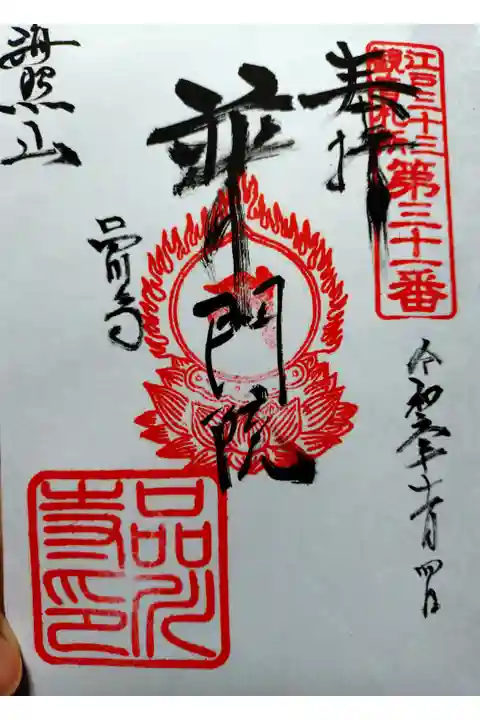 江戸三十三
観音札所
第三十一番
奉拝
普門院
海照山
品川寺
品川寺印
令和
月四日